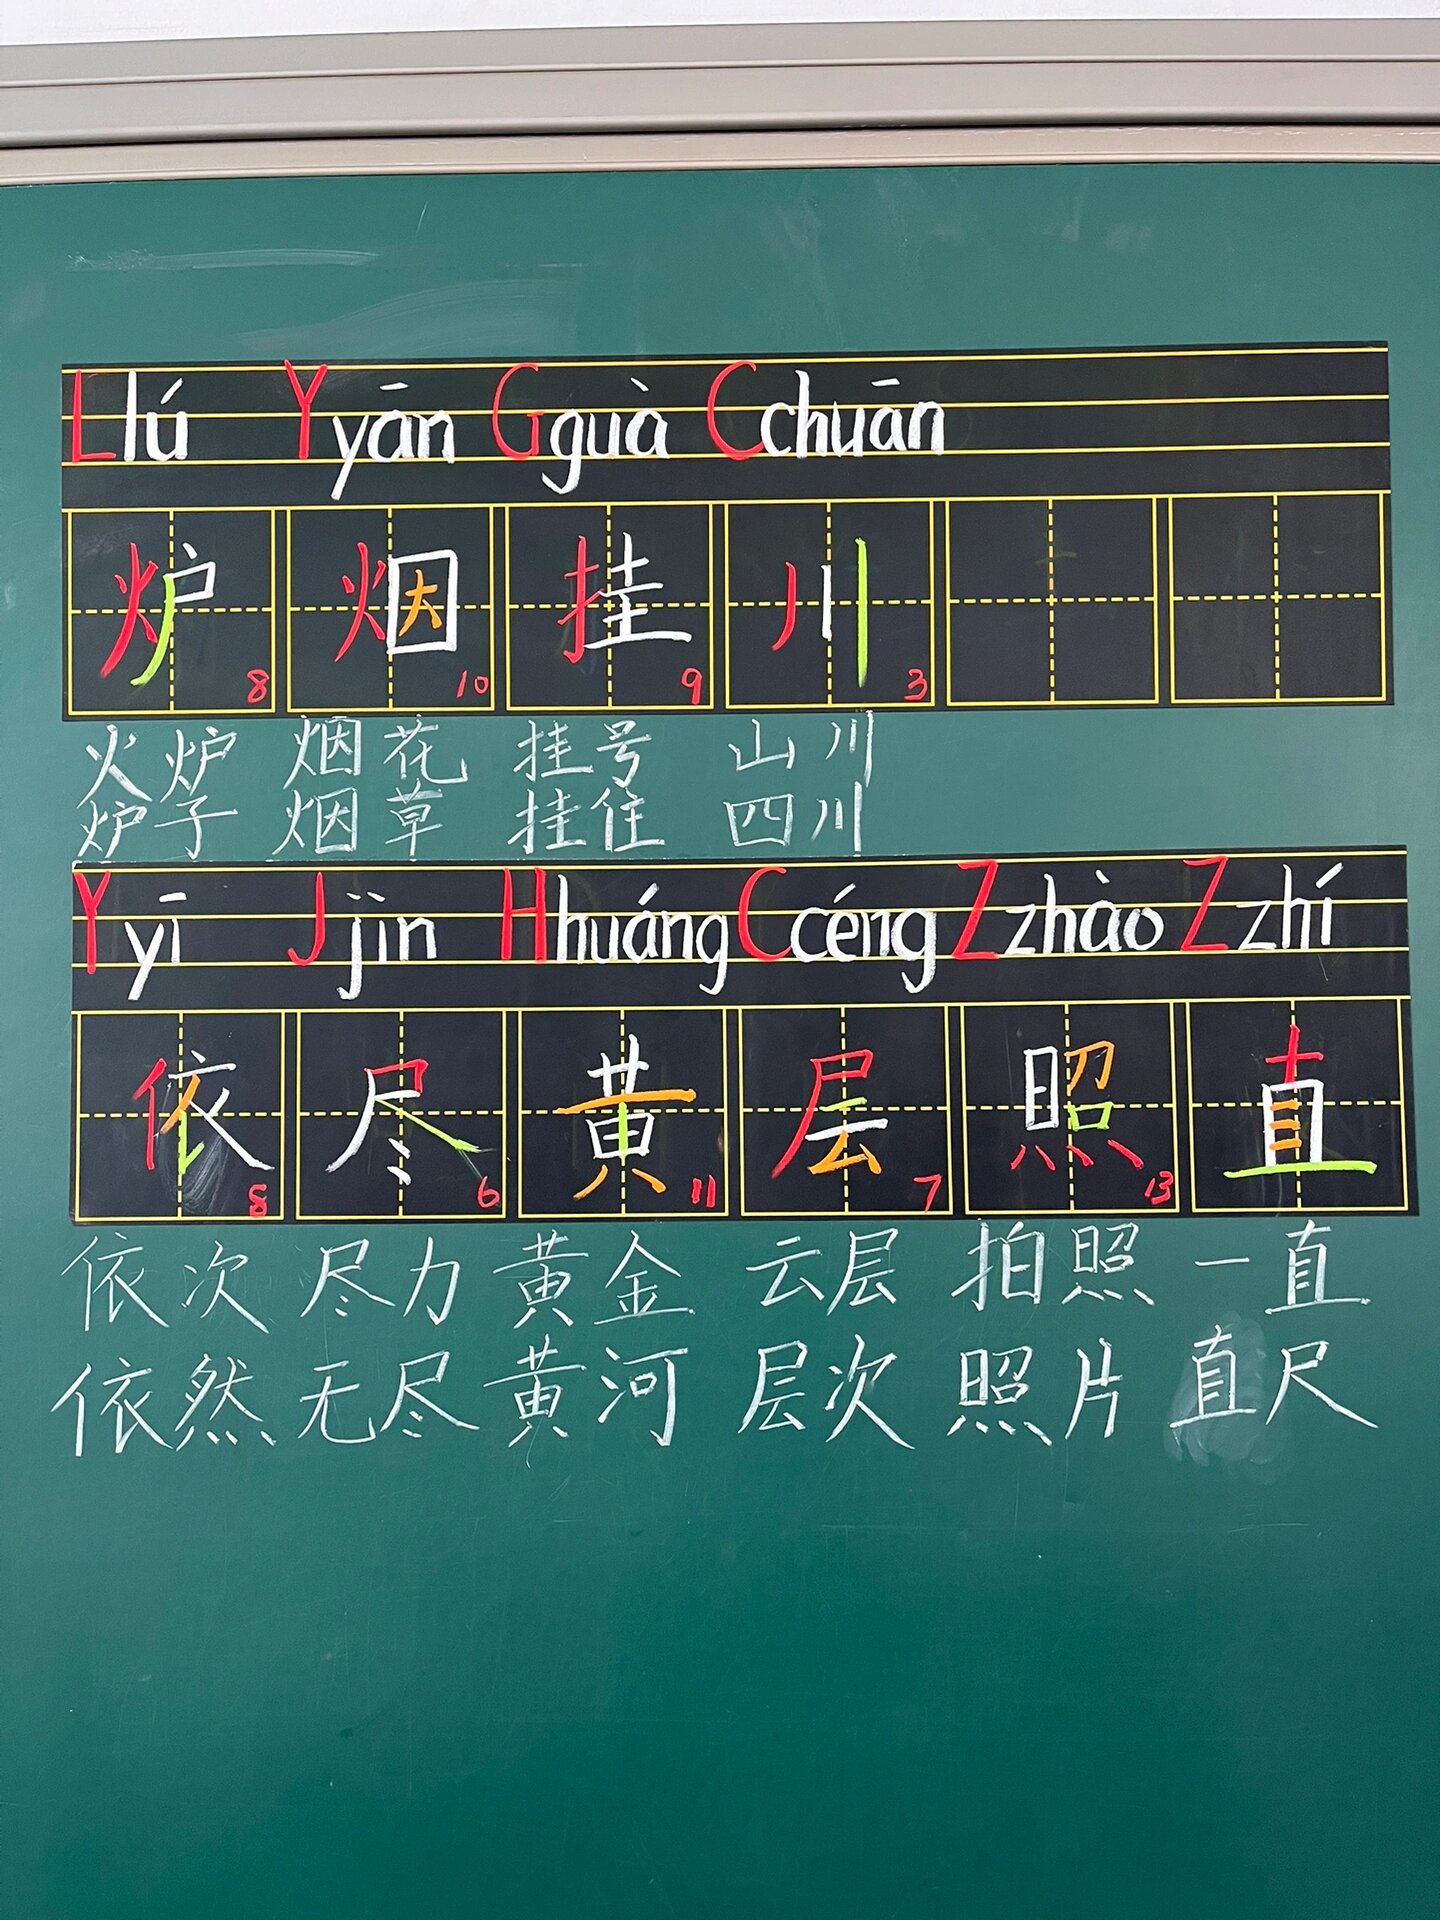 L lú Y yān G guà C chuān
炉 8 烟 10 挂 9 川 3
火炉 烟花 挂号 山川
炉子 烟草 挂住 四川
Y yī J jìn H huáng C céng Z zhào Z zhí
依 8 尽 6 黄 11 层 7 照 13 直
依次 尽力 黄金 云层 拍照 一直
依然 无尽 黄河 层次 照片 直尺